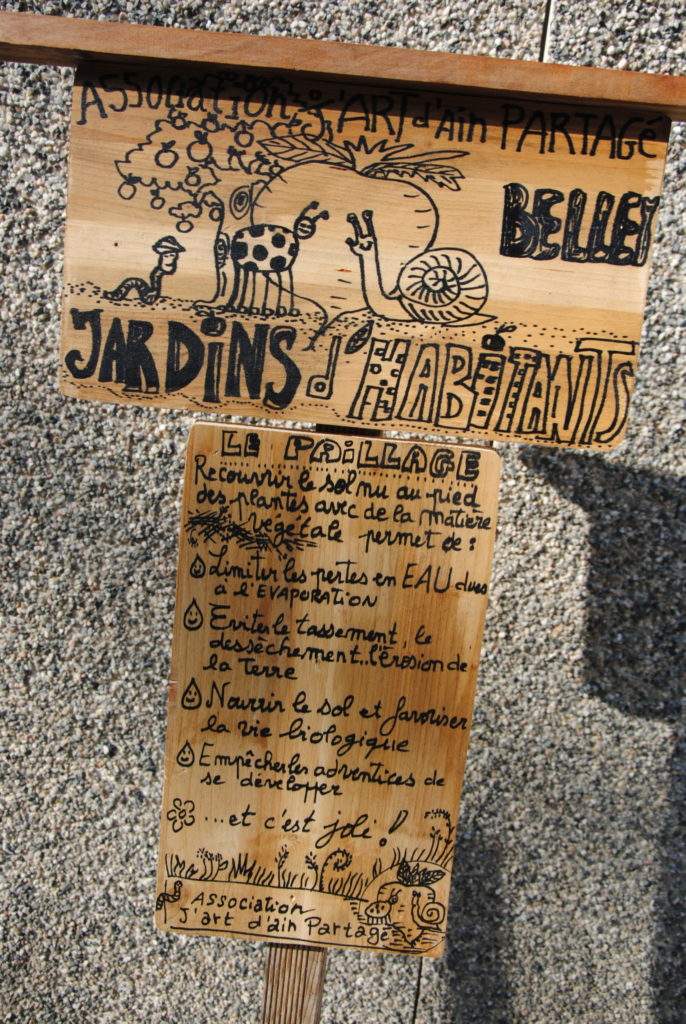 Association J'ART d'Ain PARTAGÉ
BELLEY
JARDINS d'HABITANTS
LE PAILLAGE
Recouvrir le sol nu au pied
des plantes avec de la matière
végétale permet de :
Limiter les pertes en EAU dues
à l'EVAPORATION
Eviter le tassement, le
dessèchement..l'érosion de
la Terre
Nourrir le sol et favoriser
la vie biologique
Empêcher les adventices de
se développer
...et c'est joli !
Association
J'art d'ain Partagé